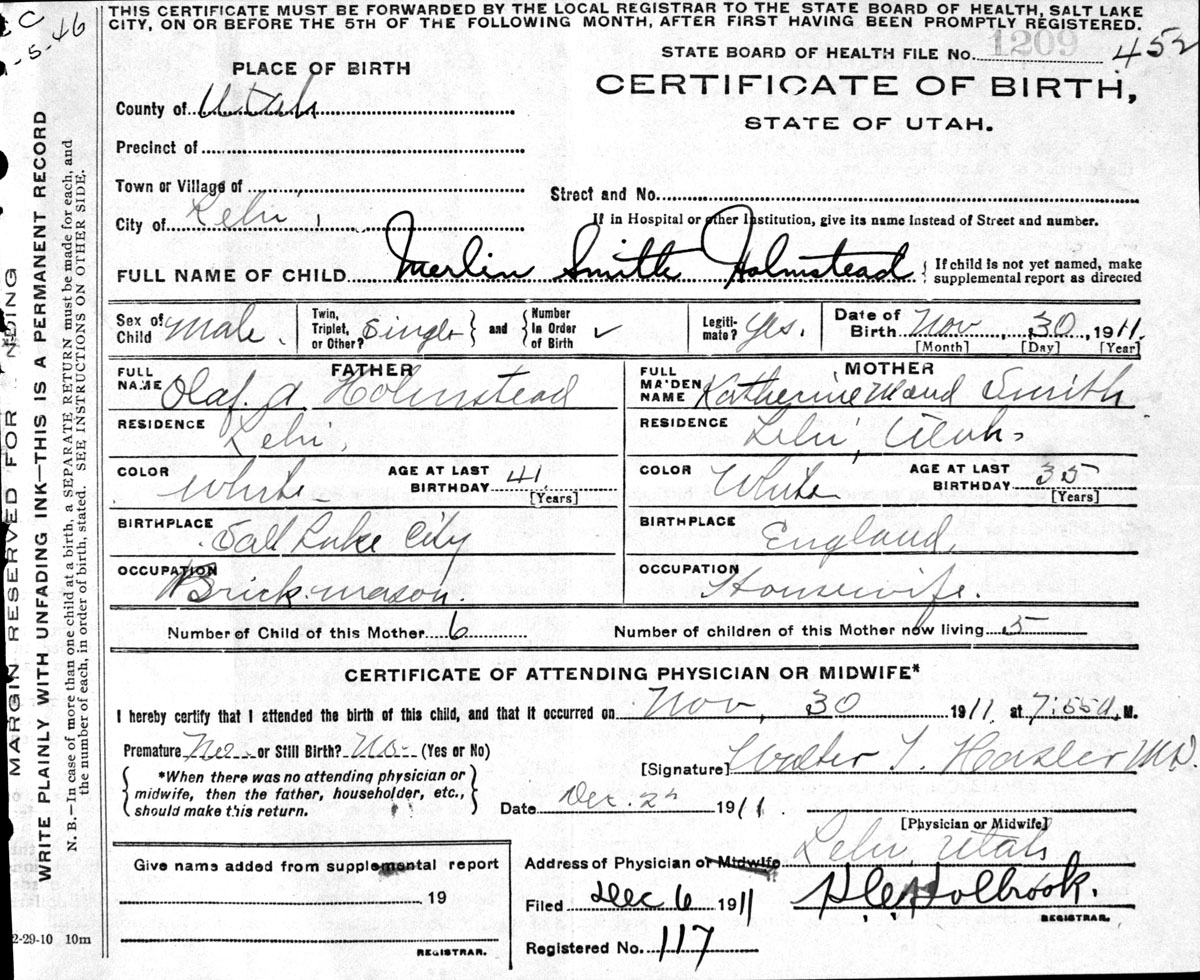 THIS CERTIFICATE MUST BE FORWARDED BY THE LOCAL REGISTRAR TO THE STATE BOARD OF HEALTH, SALT LAKE
CITY, ON OR BEFORE THE 5TH OF THE FOLLOWING MONTH, AFTER FIRST HAVING BEEN PROMPTLY REGISTERED.
C
-5-46
STATE BOARD OF HEALTH FILE No. 1209 452
PLACE OF BIRTH
CERTIFICATE OF BIRTH,
STATE OF UTAH.
County of Utah
Precinct of
Town or Village of
Street and No.
City of Lehi,
If in Hospital or other Institution, give its name instead of Street and number.
FULL NAME OF CHILD Merlin Smith Holmstead { If child is not yet named, make supplemental report as directed
Sex of Child Male. Twin, Triplet, or Other? Single } and { Number In Order of Birth ✓ Legiti- mate? Yes. Date of Birth Nov 30, 1911.
[Month] [Day] [Year]
FATHER
MOTHER
FULL NAME Olaf. A Holmstead
FULL MA'DEN NAME Katherine Maud Smith
RESIDENCE Lehi,
RESIDENCE Lehi, Utah.
COLOR White AGE AT LAST BIRTHDAY 41 [Years]
COLOR White AGE AT LAST BIRTHDAY 35 [Years]
BIRTHPLACE Salt Lake City
BIRTHPLACE England.
OCCUPATION Brick-mason.
OCCUPATION Housewife.
Number of Child of this Mother 6
Number of children of this Mother now living 5
CERTIFICATE OF ATTENDING PHYSICIAN OR MIDWIFE*
I hereby certify that I attended the birth of this child, and that it occurred on Nov, 30 1911 at M.
Premature No or Still Birth? No (Yes or No)
[Signature] Walter T. Hasler M.D.
{ *When there was no attending physician or midwife, then the father, householder, etc., should make this return. }
Date Dec. 1911.
[Physician or Midwife]
Give name added from supplemental report
19
REGISTRAR.
Address of Physician or Midwife Lehi, Utah
Filed Dec 6 1911 Holbrook.
REGISTRAR.
Registered No. 117
2-29-10 10m
MARGIN RESERVED FOR
WRITE PLAINLY WITH UNFADING INK—THIS IS A PERMANENT RECORD
N. B.—In case of more than one child at a birth, a SEPARATE RETURN must be made for each, and
the number of each, in order of birth, stated. SEE INSTRUCTIONS ON OTHER SIDE.